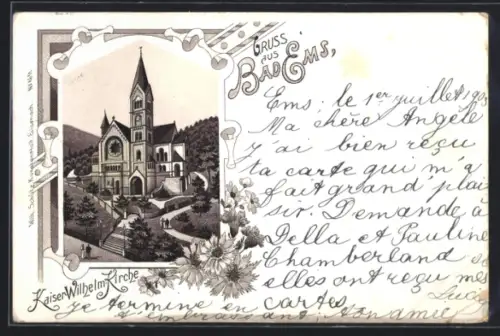 GRUSS
AUS
BAD EMS,
Ems, le 1er juillet 190
Ma chère Angèle
j'ai bien reçu
ta carte qui m'a
fait grand plai
sir. Demande à
Della et Pauline
Chamberland si
elles ont reçu mes
cartes.
Je termine en
t'embrassant. Ton amie
Kaiser Wilhelm Kirche